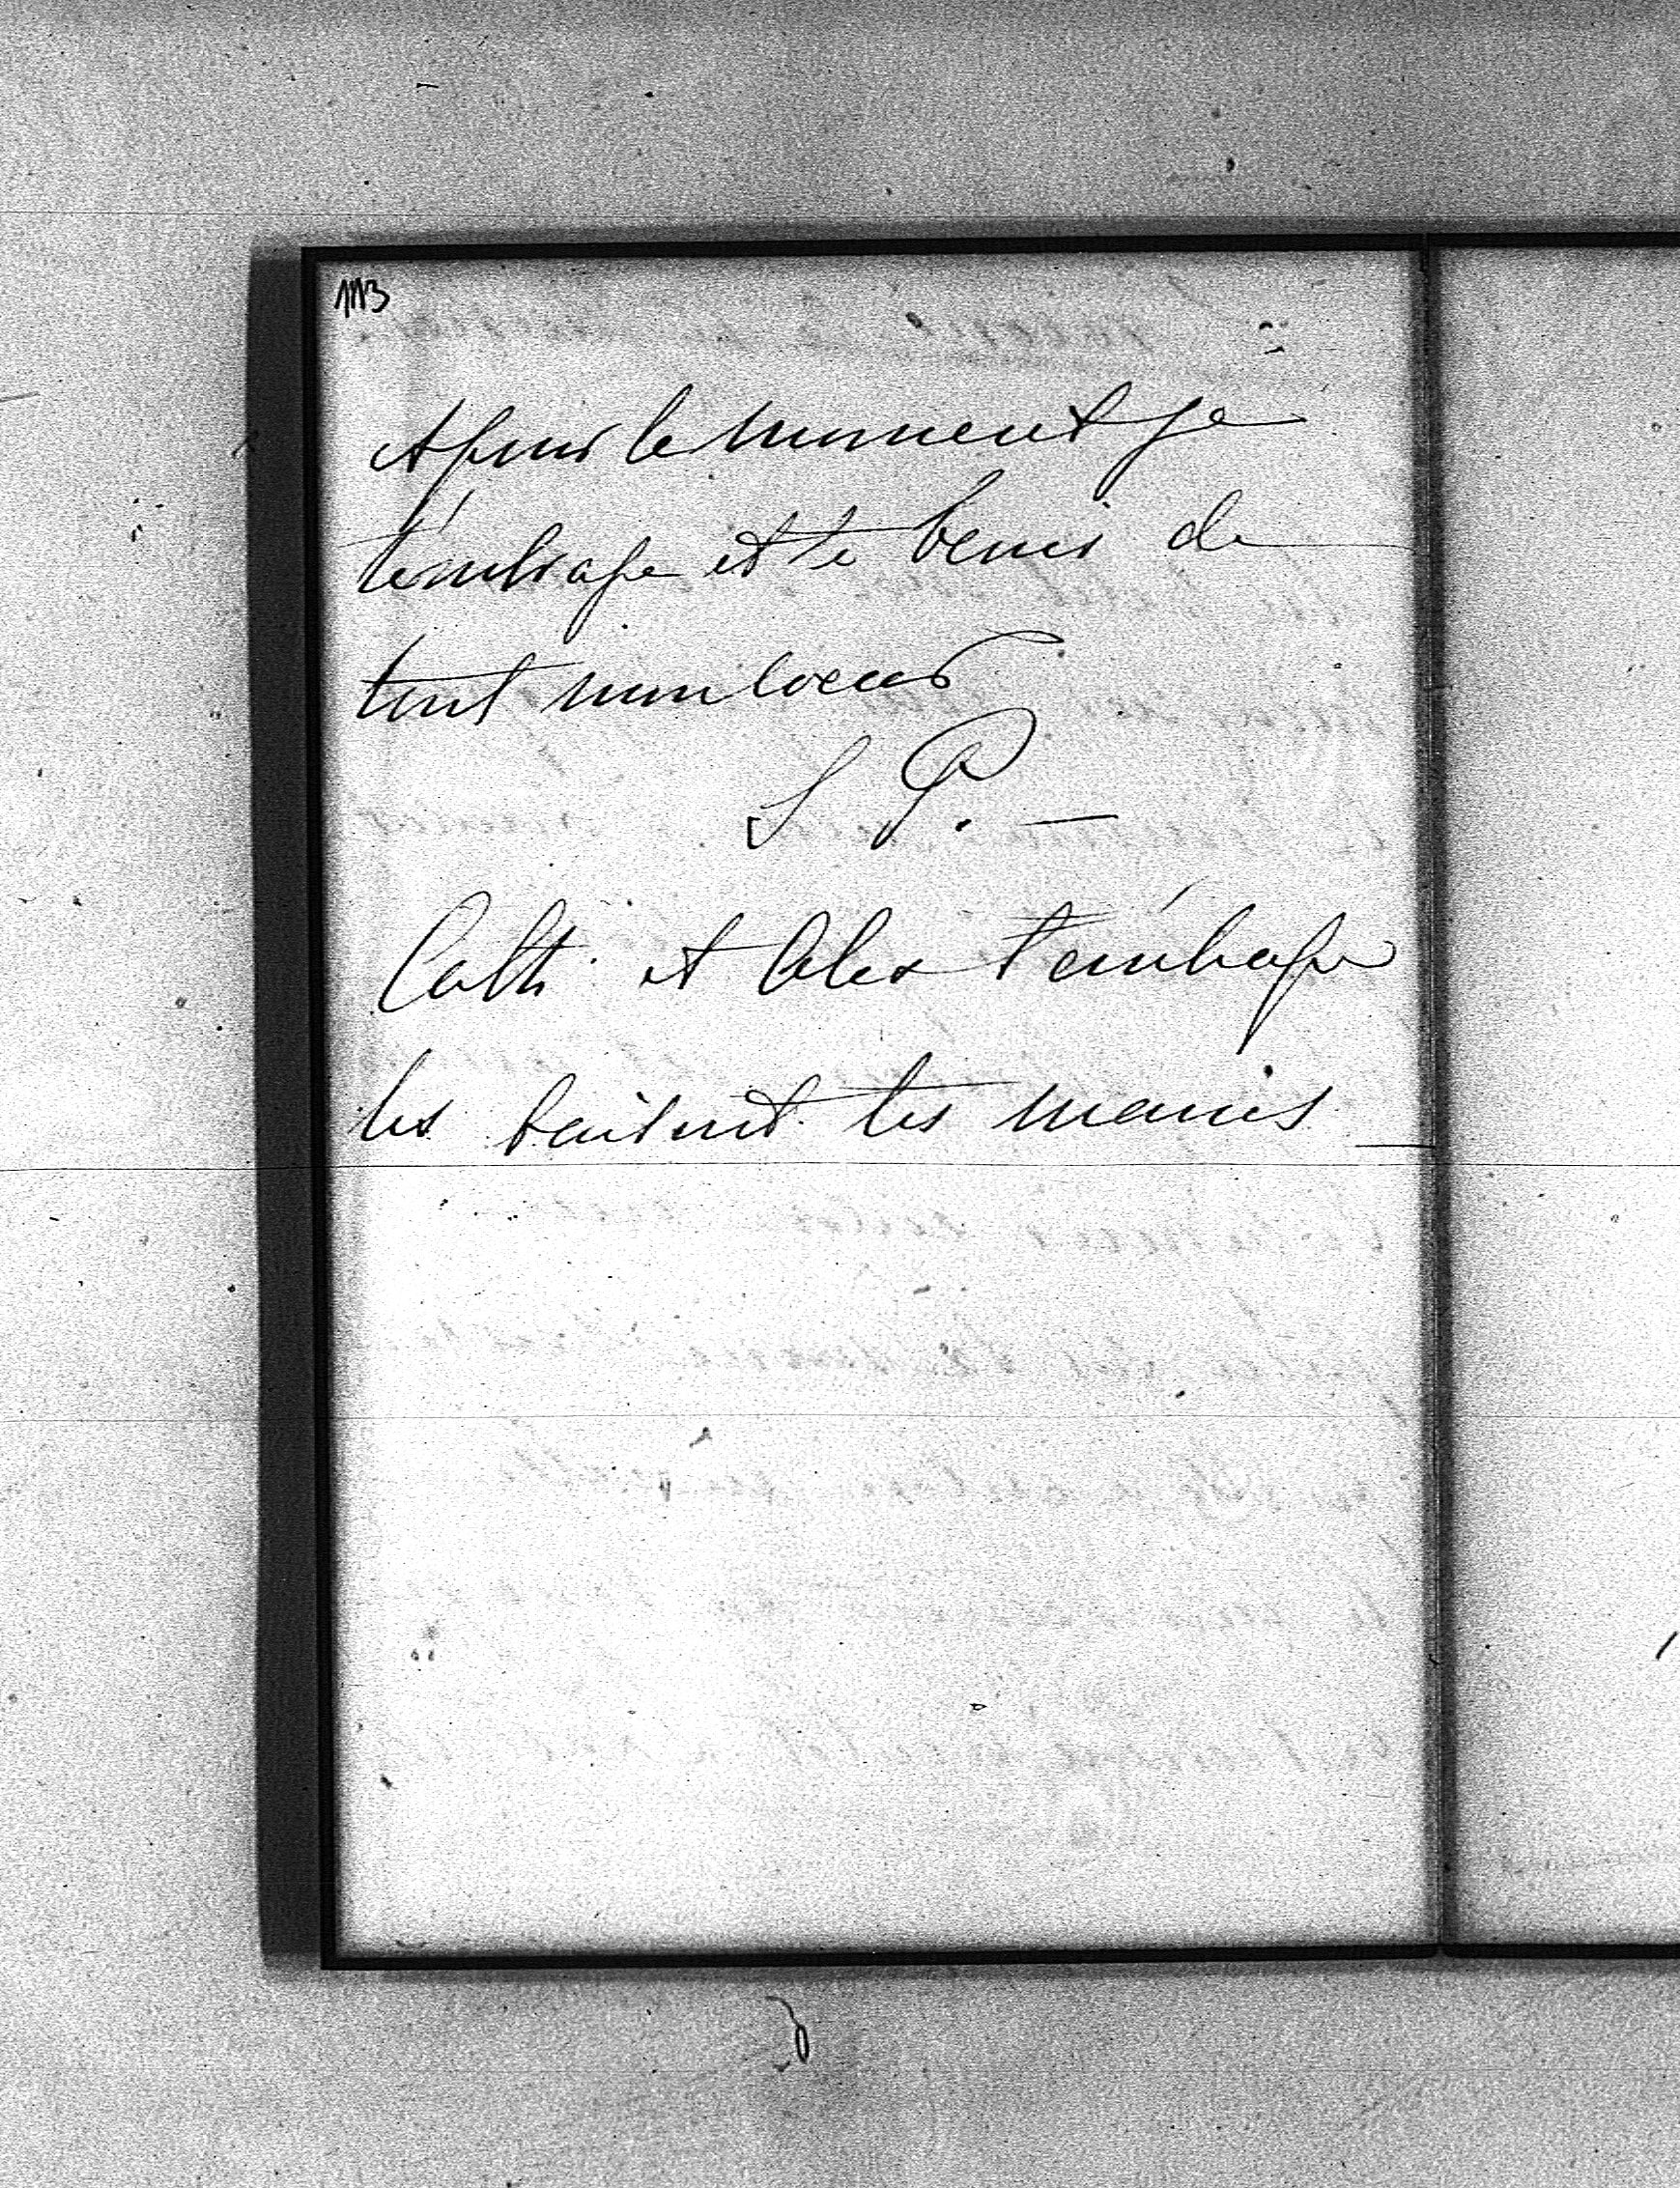 1113
et pour le moment je
t'embrasse et te benis de
tout mon coeur
S P. —
Cath: et Alex t'embrasse
les baisent tes mains —